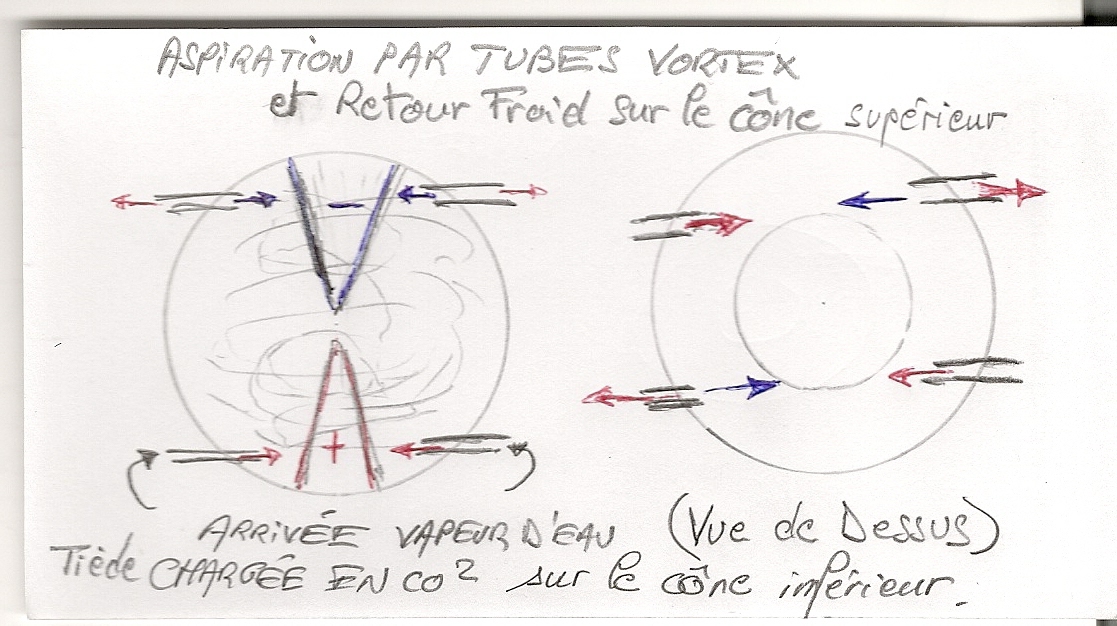 ASPIRATION PAR TUBES VORTEX
et Retour Froid sur le cône supérieur
−
+
ARRIVÉE VAPEUR D'EAU (Vue de Dessus)
Tiède CHARGÉE EN CO² sur le cône inférieur.